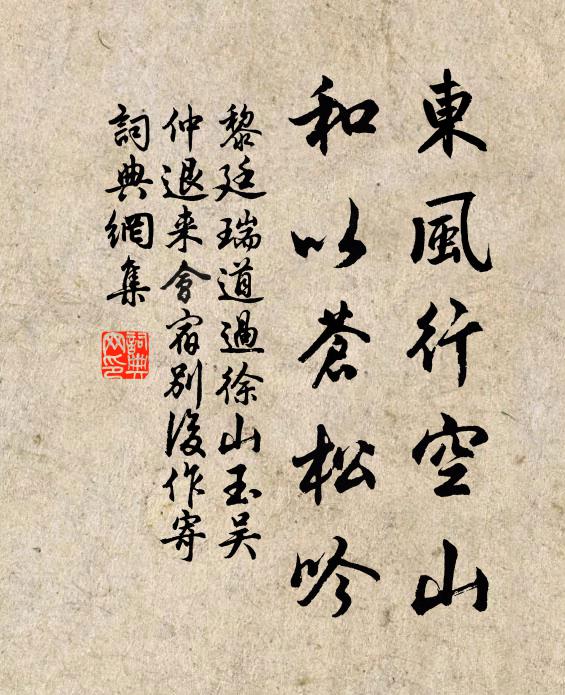 東風行空山
和以蒼松吟
黎廷瑞道過徐山玉吴
仲退来會宿别後作寄
詞典網集
詞典
网印